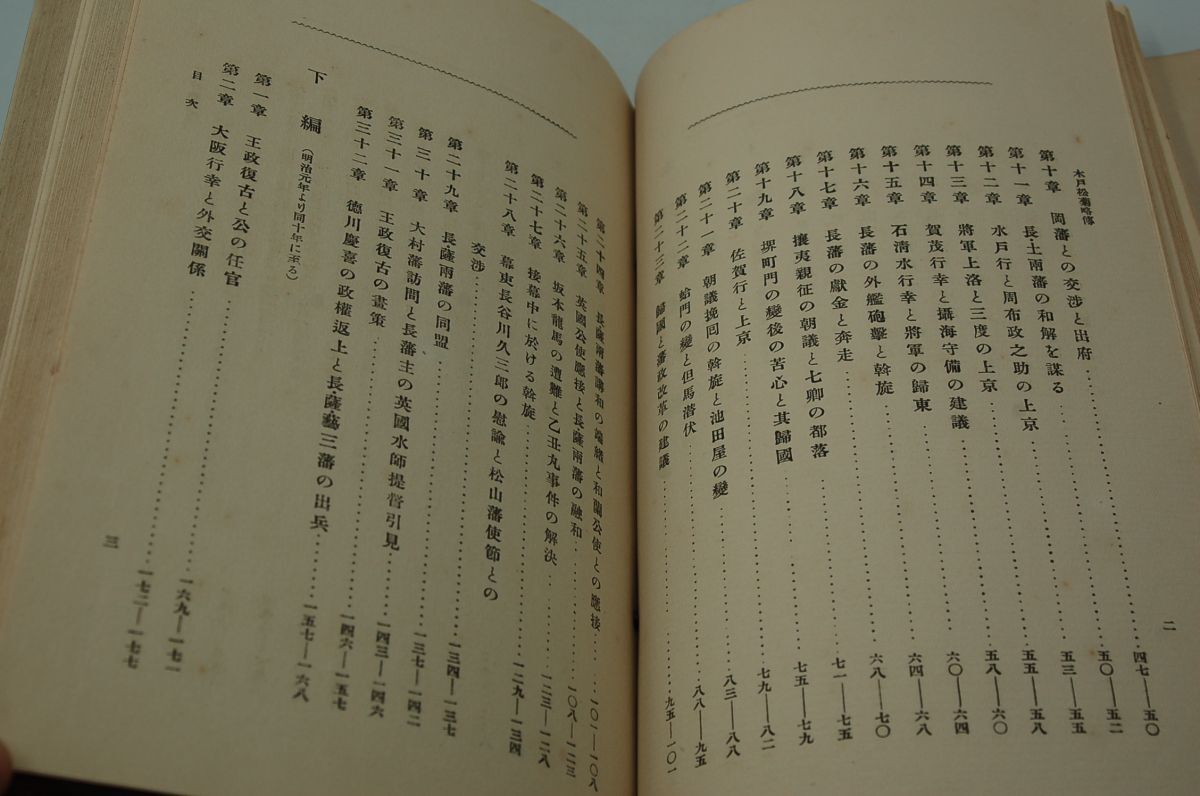 木戸松菊略傳
二
第十章 岡藩との交渉と出府……四七―五〇
第十一章 長・土兩藩の和解を謀る……五〇―五二
第十二章 水戸行と周布政之助の上京……五三―五五
第十三章 將軍上洛と三度の上京……五五―五八
第十四章 賀茂行幸と攝海守備の建議……五八―六〇
第十五章 石清水行幸と將軍の歸東……六〇―六四
第十六章 長藩の外艦砲擊と斡旋……六四―六八
第十七章 長藩の獻金と奔走……六八―七〇
第十八章 攘夷親征の朝議と七卿の都落……七一―七五
第十九章 堺町門の變後の苦心と其歸國……七五―七九
第二十章 佐賀行と上京……七九―八二
第二十一章 朝議挽囘の斡旋と池田屋の變……八三―八八
第二十二章 蛤門の變と但馬潜伏……八八―九五
第二十三章 歸國と藩政改革の建議……九五―一〇一
第二十四章 長薩兩藩講和の端緒と和蘭公使との應接……一〇一―一〇八
第二十五章 英國公使應接と長薩兩藩の融和……一〇八―一二三
第二十六章 坂本龍馬の遭難と乙丑丸事件の解決……一二三―一二八
第二十七章 後幕中に於ける斡旋
第二十八章 幕吏長谷川久三郎の慰諭と松山藩使節との
交渉……一二九―一三四
第二十九章 長薩兩藩の同盟……一三四―一三七
第三十章 大村藩訪問と長藩主の英國水師提督引見……一三七―一四二
第三十一章 王政復古の畫策……一四三―一四六
第三十二章 德川慶喜の政權返上と長・薩・藝三藩の出兵……一四六―一五七
一五七―一六八
下編(明治元年より同十年に至る)
第一章 王政復古と公の任官……一六九―一七一
第二章 大阪行幸と外交關係……一七二―一七七
目次
三